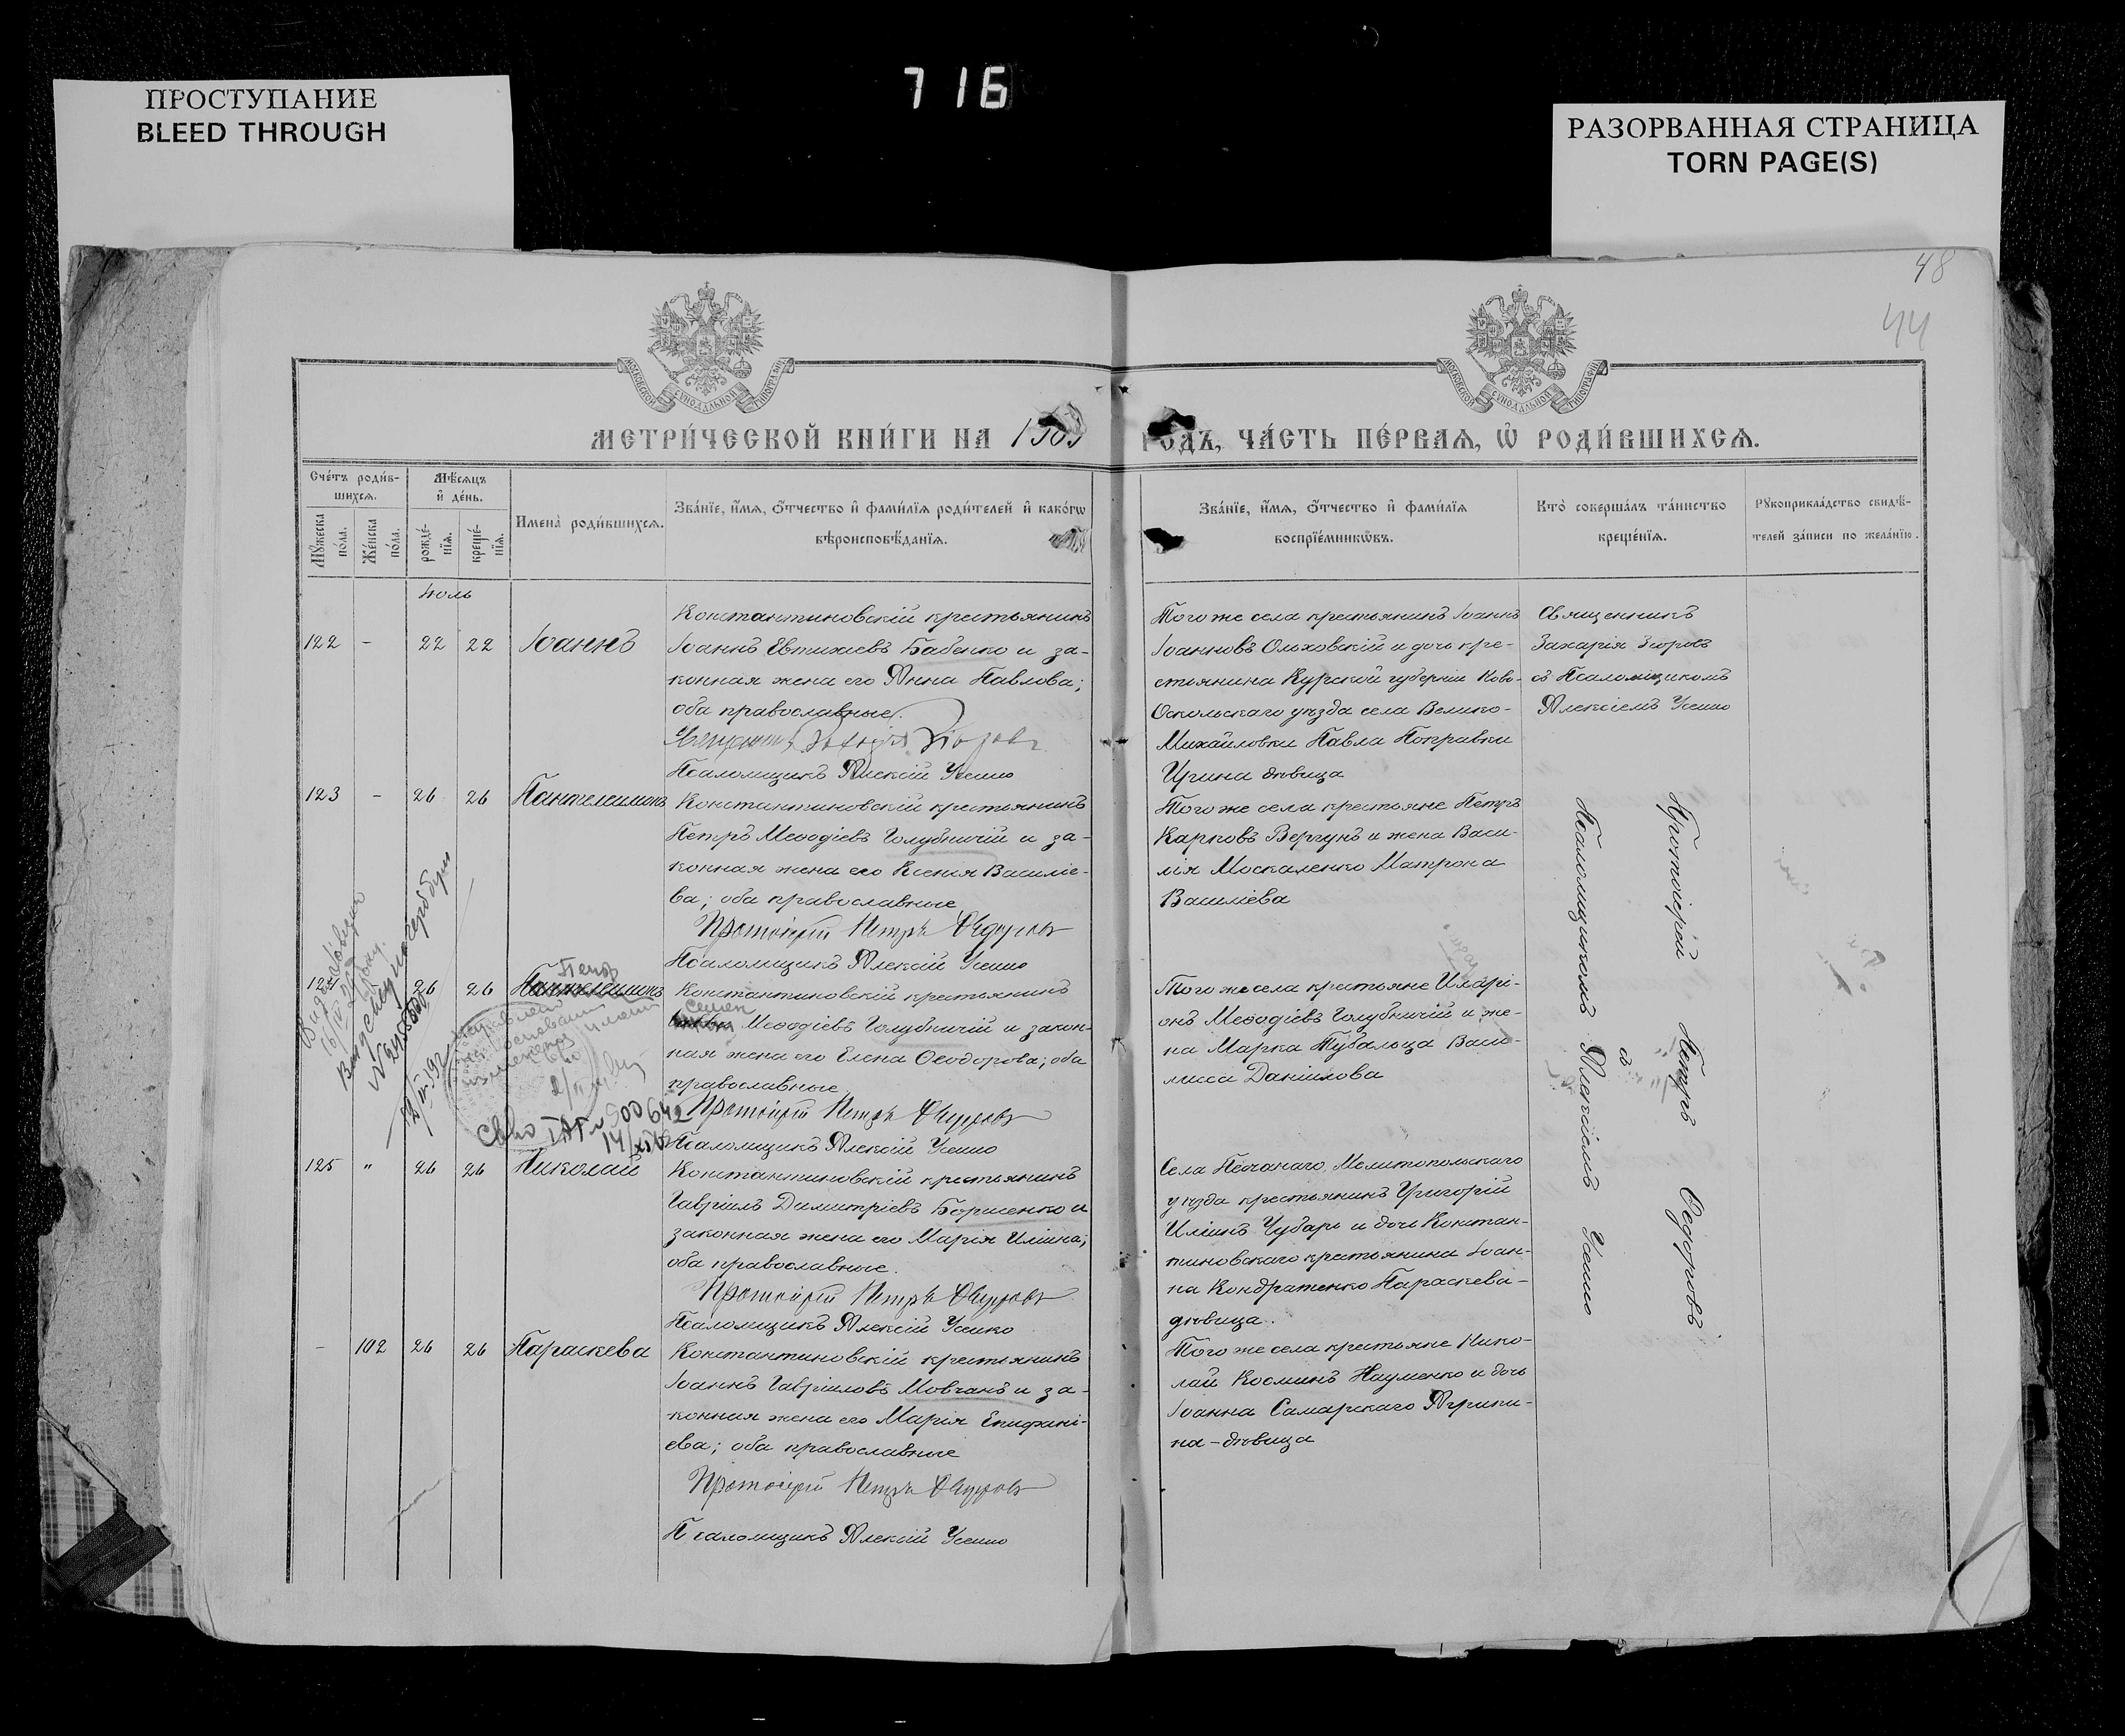 ПРОСТУПАНИЕ
BLEED THROUGH
716
РАЗОРВАННАЯ СТРАНИЦА
TORN PAGE(S)
48
44
МОСКОВСКОЙ СѴНОДАЛЬНОЙ ТИПОГРАФІИ
МОСКОВСКОЙ СѴНОДАЛЬНОЙ ТИПОГРАФІИ
МЕТРИ́ЧЕСКОЙ КНИ́ГИ НА
РОДЪ, ЧА́СТЬ ПЕ́РВАЯ, Ѡ҆ РОДИ́ВШИХСЯ.
Сче́тъ роди́в-
шихся.
Мѣ́сяцъ
и҆ де́нь.
Мꙋ́жеска
по́ла.
Же́нска
по́ла.
рожде́-
нїя.
креще́-
нїя.
Имена̀ роди́вшихся.
Зва́нїе, и҆́мя, ѻ҆́тчество и҆ фами́лїя роди́телей и҆ како́гѡ
вѣроисповѣ́данїя.
Зва́нїе, и҆́мя, ѻ҆́тчество и҆ фами́лїя
воспрїе́мникѡвъ.
Кто̀ соверша́лъ та́инство
креще́нїя.
Рꙋкоприкла́дство свидѣ́-
телей за́писи по жела́нїю.
Іюль
122 - 22 22 Іоаннъ
Константиновскій крестьянинъ
Іоаннъ Евтихіевъ Бабенко и за-
конная жена его Анна Павлова;
оба православные.
Священникъ Захарія
Псаломщикъ Алексій Усенко
Того же села крестьянинъ Іоаннъ
Іоанновъ Ольховскій и дочь кре-
стьянина Курской губерніи Ново-
Оскольскаго уѣзда села Велико-
Михайловки Павла Покравки
Ирина дѣвица
Священникъ
Захарія
съ Псаломщикомъ
Алексіемъ Усенко
123 - 26 26 Пантелеимонъ
Константиновскій крестьянинъ
Петръ Меѳодіевъ Голубничій и за-
конная жена его Ксенія Василіе-
ва; оба православные
Протоіерей Петръ Ѳедоровъ
Псаломщикъ Алексій Усенко
Того же села крестьяне Петръ
Карповъ Вергунъ и жена Васи-
лія Москаленко Матрона
Василіева
Протоіерей Петръ Ѳедоровъ
съ
Псаломщикомъ Алексіемъ Усенко
124 26 26 Пантелеимонъ
Константиновскій крестьянинъ
Семен
Меѳодіевъ Голубничій и закон-
ная жена его Елена Ѳеодорова; оба
православные
Протоіерей Петръ Ѳедоровъ
Псаломщикъ Алексій Усенко
Того же села крестьяне Иларі-
онъ Меѳодіевъ Голубничій и же-
на Марка Тубальца Васи-
лисса Даніилова
125 " 26 26 Николай
Константиновскій крестьянинъ
Гавріилъ Димитріевъ Борисенко и
законная жена его Марія Иліина;
оба православные.
Протоіерей Петръ Ѳедоровъ
Псаломщикъ Алексій Усенко
Села Песчанаго, Мелитопольскаго
уѣзда крестьянинъ Григорій
Иліинъ Чубарь и дочь Констан-
тиновскаго крестьянина Іоан-
на Кондратенко Параскева-
дѣвица.
- 102 26 26 Параскева
Константиновскій крестьянинъ
Іоаннъ Гавріиловъ Мовчанъ и за-
конная жена его Марія Епифані-
ева; оба православные
Протоіерей Петръ Ѳедоровъ
Псаломщикъ Алексій Усенко
Того же села крестьяне Нико-
лай Косминъ Науменко и дочь
Іоанна Самарскаго Агрипи-
на-дѣвица